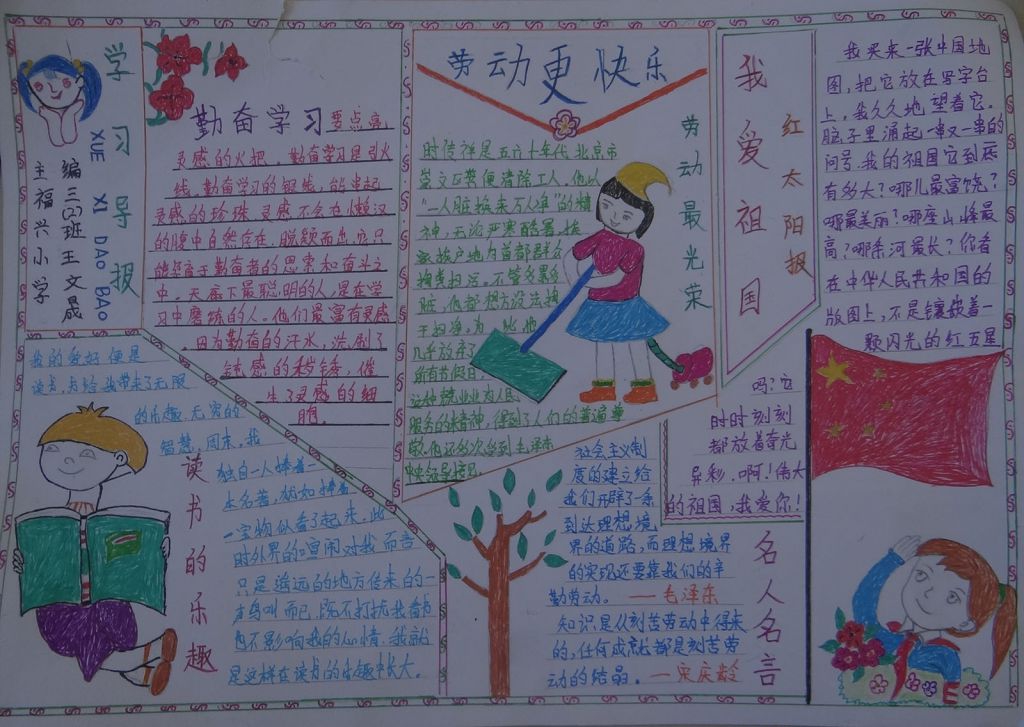 学习导报
XUE XI DAO BAO
主编
福三(2)班
兴王
小文
学晟
勤奋学习要点亮
灵感的火把。勤奋学习是引火
线，勤奋学习的银线，能串起
灵感的珍珠，灵感不会在懒汉
的脑中自然存在，脱颖而出，它只
能钟于勤奋者的思索和奋斗之
中。天底下最聪明的人，是在学
习中磨练的人。他们最富有灵感
因为勤奋的汗水，洗刷了
灵感的锈，催
生了灵感的细
胞。
读书的乐趣
我的爱好便是
读书，书给我带来了无限
的乐趣，无穷的
智慧，周末，我
独自一人捧着一
本名著，犹如捧着
一宝物似看了起来，此
时外界的喧闹对我而言
只是遥远的地方传来的一
声鸟叫而已，既不打扰我看书
也不影响我的心情，我就
是这样在读书的乐趣中长大。
劳动更快乐
劳动最光荣
时传祥是五六十年代北京市
崇文区粪便清除工人，他以
“一人脏换来万人净”的精
神，无论严寒酷暑，挨
家挨户地为首都群众
掏粪扫污。不管多累多
脏，他都想方设法掏
干扫净，为此，他
几乎放弃了
所有节假日，
这种兢兢业业为人民
服务的精神，得到了人们的普遍尊
敬，他还多次受到毛泽东
名人名言
社会主义制
度的建立给
我们开辟了一条
到达理想境
界的道路，而理想境界
的实现还要靠我们的辛
勤劳动。 —毛泽东
知识是从刻苦劳动中得来
的，任何成就都是刻苦劳
动的结晶。—宋庆龄
我爱祖国
红太阳报
我买来一张中国地
图，把它放在写字台
上，我久久地望着它，
脑子里涌起一串又一串的
问号，我的祖国它到底
有多大？哪儿最富饶？
哪最美丽？哪座山峰最
高？哪条河最长？你看
在中华人民共和国的
版图上，不是镶嵌着一
颗闪光的红五星
吗？它
时时刻刻
都放着奇光
异彩，啊！伟大
的祖国，我爱你！